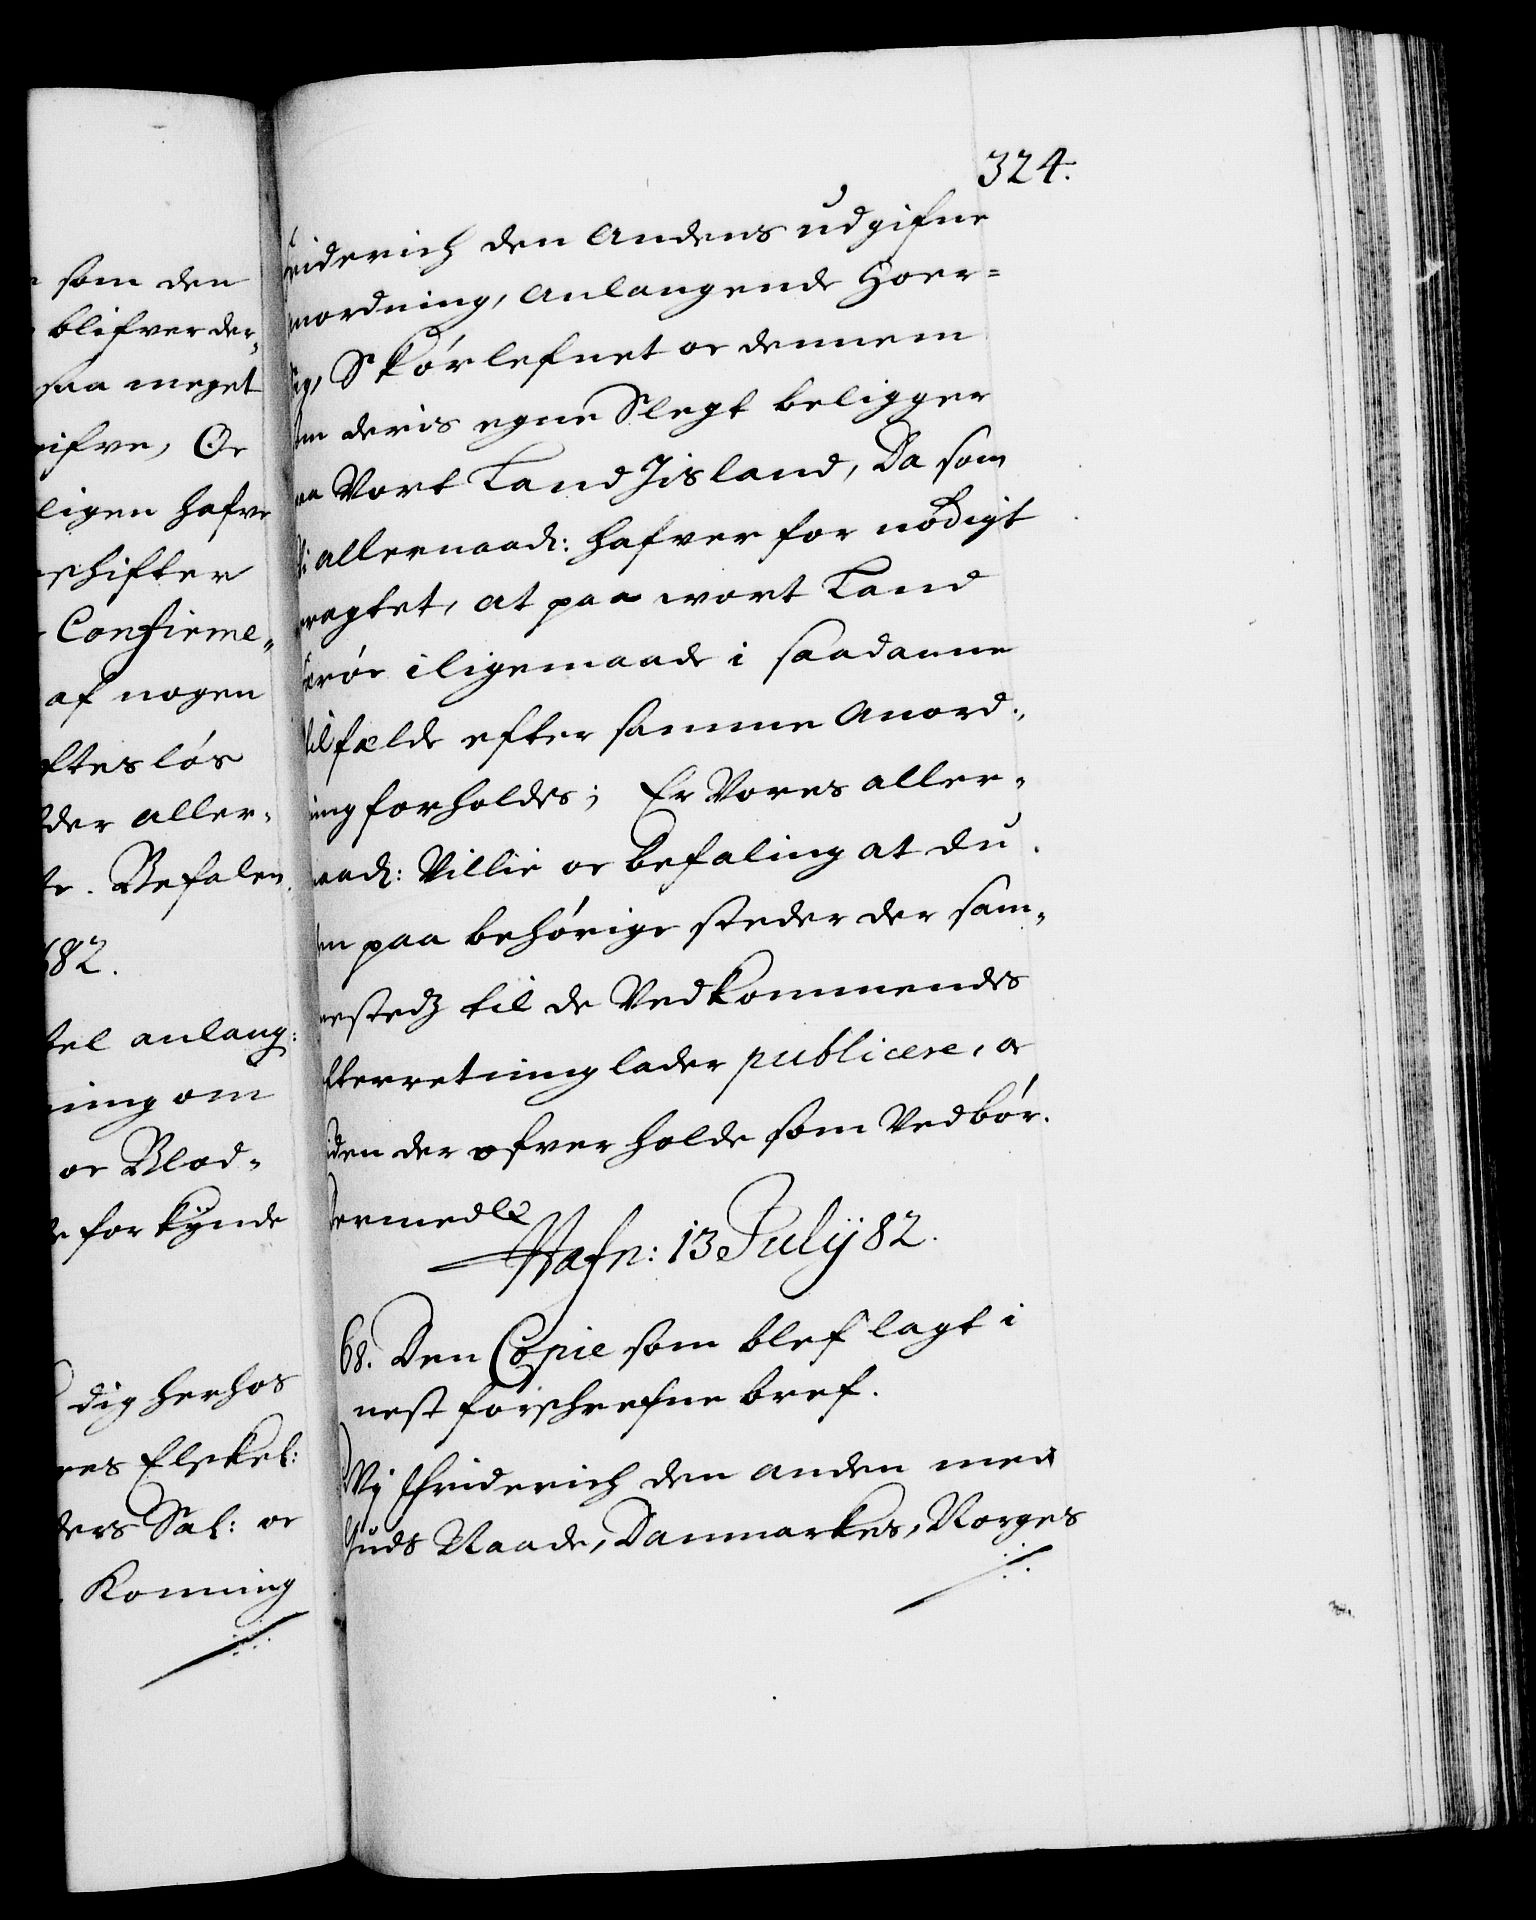 som den
blifver der„
saa meget
gifve, Oc
ligen hafve
schifter
Confirme„
af nogen
ftesløs
der aller„
Befalen
82.
tel anlang:
ning om
oc Blod„
forkynde
dig herhos
res Elskel:
ders Sal: oc
Konning
324.
riderich den Andens udgifne
nordning, anlangende Hoer=
Skørlefnet oc dennem
deris egne Slegt beligger
aa Vort Land Jisland, Da som
Vi allernaad: hafver for nødigt
ragtet, at paa wort Land
erøe iligemaade i saadanne
tilfælde efter samme Anord„
ning forholdes; Er Vores aller„
naad: Villie oc befaling at du
den paa behørige steder der sam„
mestedz til de Vedkommendes
fterretning lader publicere, oc
iden der ofver holde som Vedbør.
Dermed &
Hafn: 13 Julij 82.
68. Den Copie som blef lagt i
nest forschrefne bref.
Vij Friderich den anden med
Guds Naade, Danmarkes, Norges